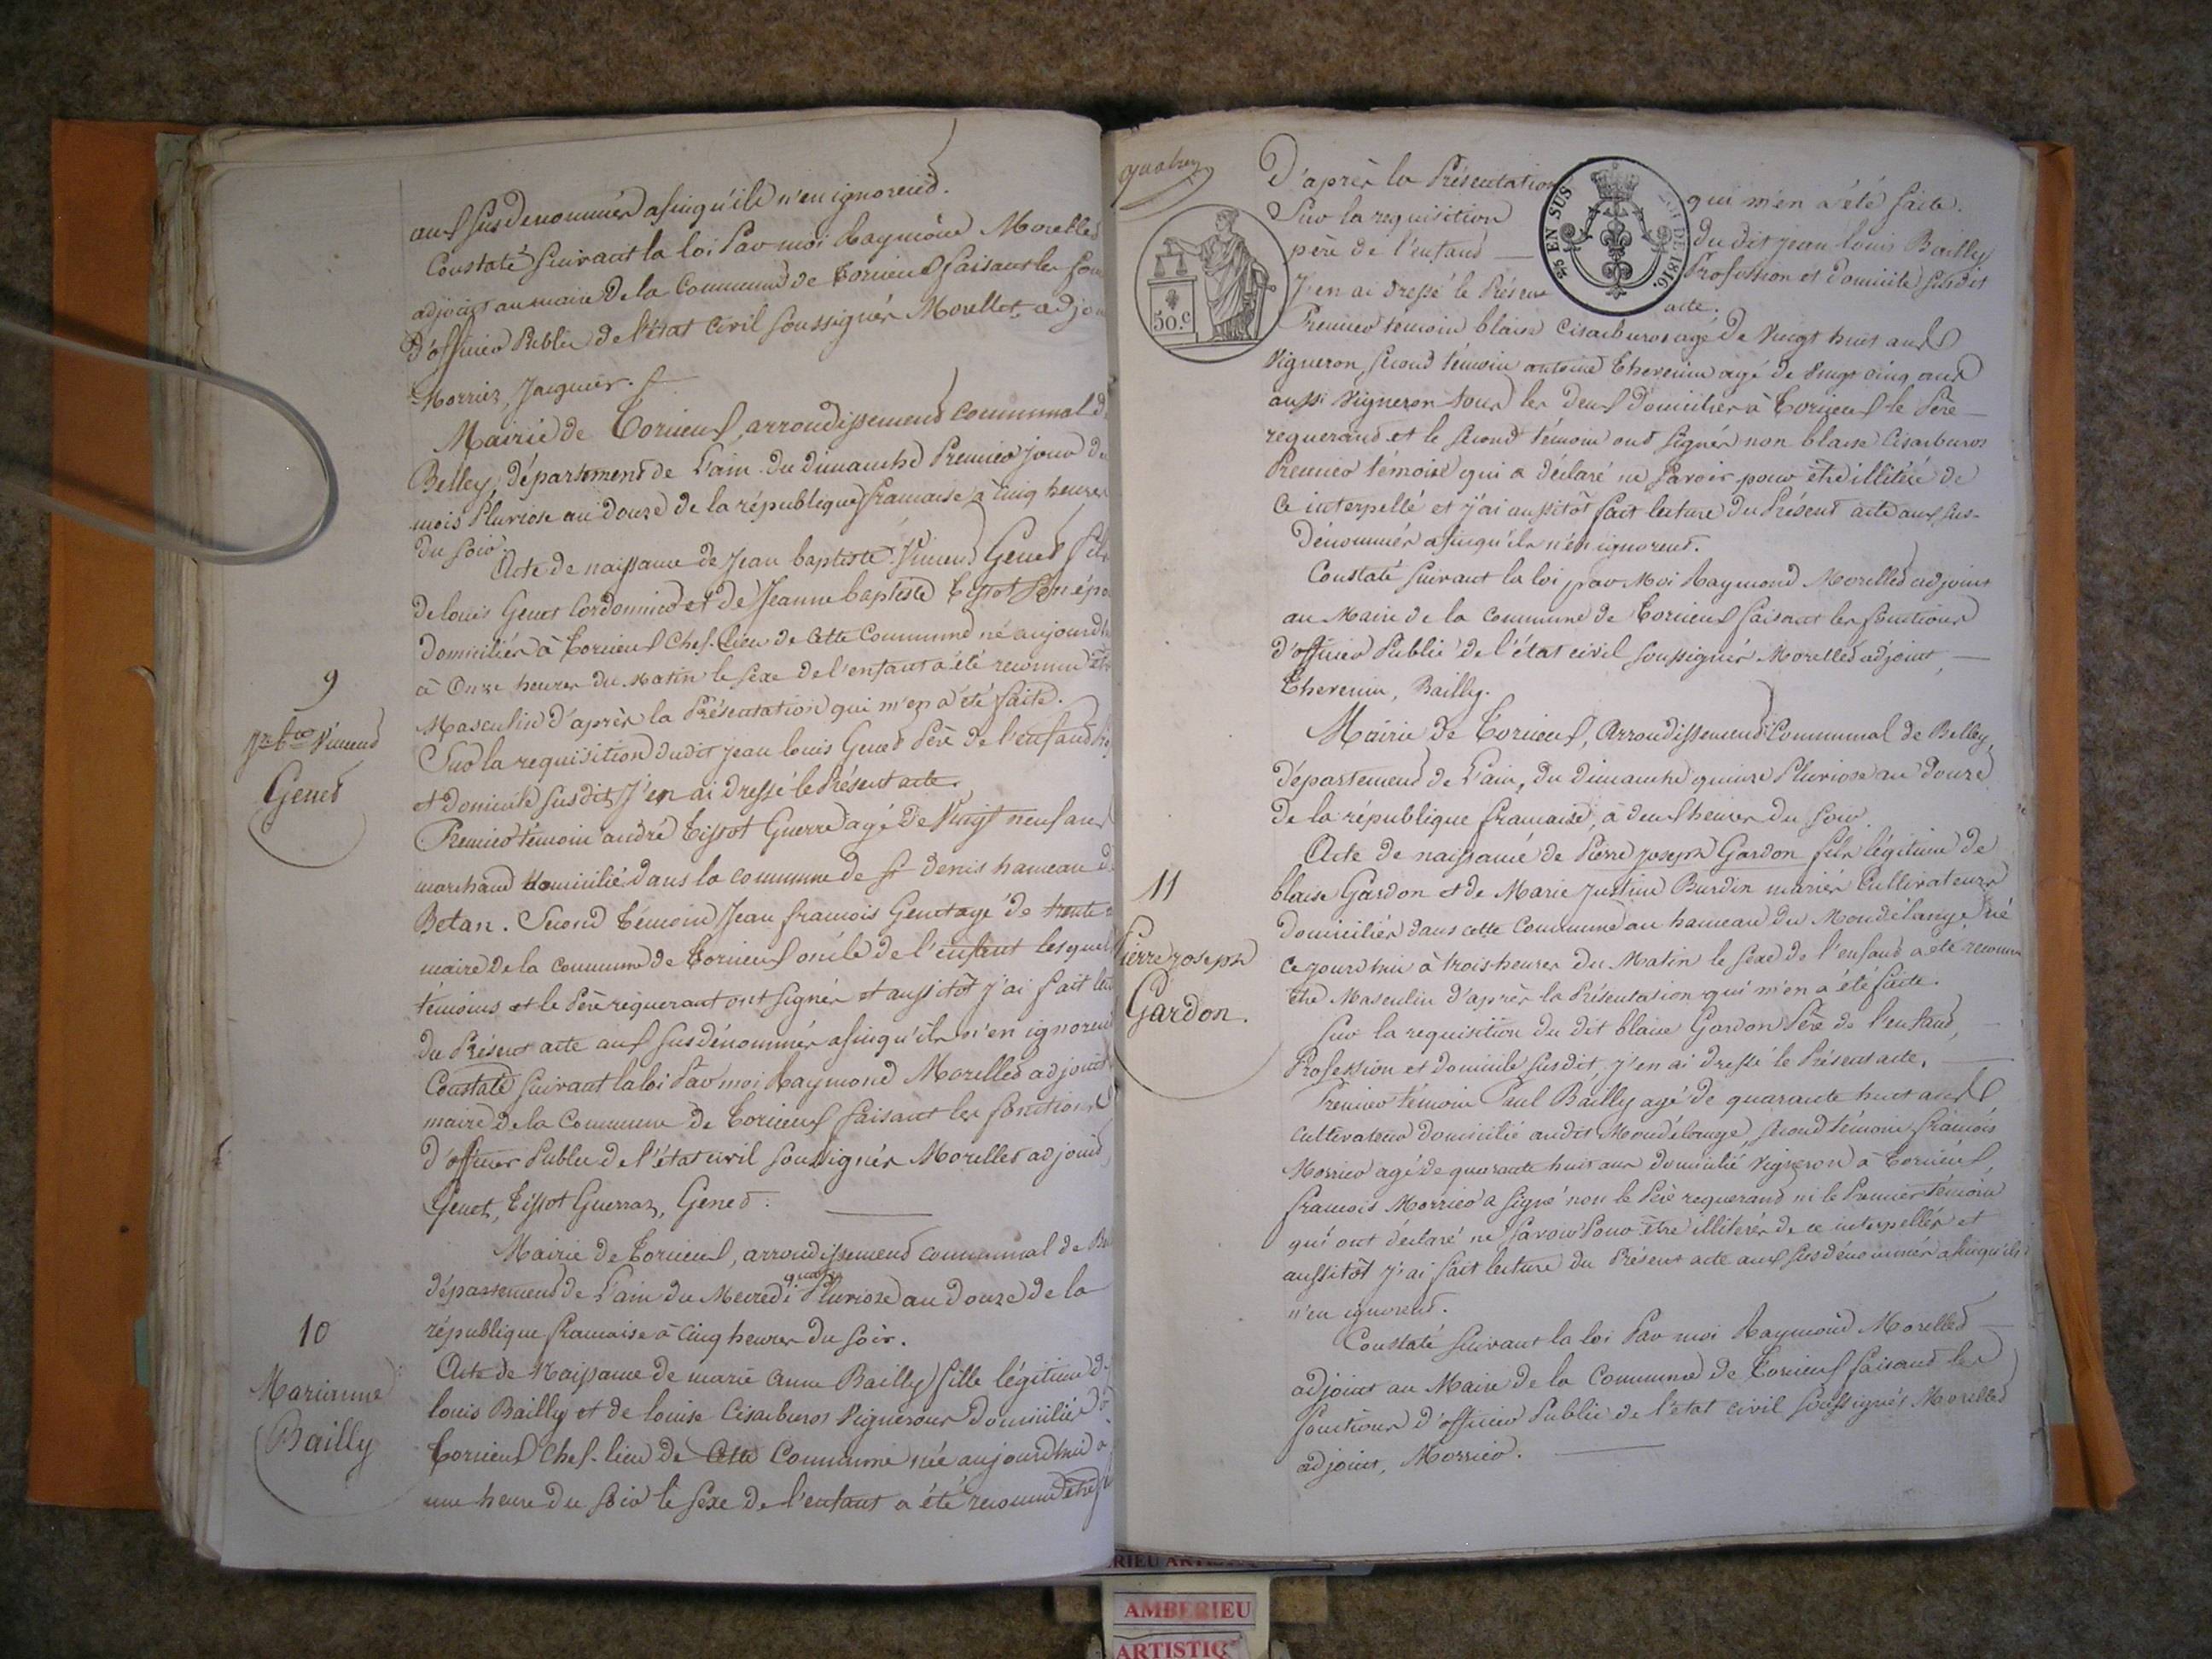 aux susdenommés afinqu'ils n'en ignorend.
Constaté suivant la loi Par moi Raymond Morelled
adjoint au maire de la Commune de Torcieux faisant les fon
d'officier Public de l'état Civil soussignés Morellet, adjoin
Morrier, Jacquier.
Mairie de Torcieux, arrondissement communal de
Belley, département de l'ain du dimanche Premier jour du
mois Pluviose an douze de la république francaise à cinq heures
du soir
9
Jn bte Vincend
Gened
Acte de naissance de Jean baptiste Vincend Gened fils
de louis Genet Cordonnier et de Jeanne baptiste Tissot son épo
domiciliés à Torcieux Chef-lieu de Cette Commune né aujourdh
à Onze heures du matin le sexe de l'enfant a été reconnu être
Masculin d'après la Présentation qui m'en a été faite.
Sur la requisition dudit Jean louis Gened Père de l'enfand
et domicile susdits J'en ai dressé le Présent acte
Premier témoin andré Tissot Guerre agé de Vingt neuf ans
marchand domicilié dans la commune de st denis hameau de
Betan. Second Témoin Jean francois Genet agé de trente
maire de la commune de Torcieux oncle de l'enfant lesquel
témoins et le Père requerant ont signés et aussitôt j'ai fait lec
du Présent acte aux susdénommés afinqu'ils n'en ignorend
Constaté suivant la loi Par moi Raymond Morelled adjoint
maire de la Commune de Torcieux faisant les fonctions
d'officier Public de l'état civil soussignés Morelled adjoind,
Genet, Tissot Guerraz, Gened.
Mairie de Torcieux, arrondissement communal de Bel
département de l'ain du Mecredi quatre Pluviose an douze de la
république francaise à Cinq heures du soir.
10
Marianne
Bailly
Acte de Naissance de marie anne Bailly fille légitime de
louis Bailly et de louise Cisarburos Vignerons domiciliés à
Torcieux Chef-lieu de Cette Commune née aujourdhui à
une heure du soir le sexe de l'enfant a été reconnu être
quatre
50.c
25 EN SUS
DE 1816.
D'après la Présentation qui m'en a été faite.
Sur la requisition du dit Jean louis Bailly
père de l'enfand Profession et domicile susdit
J'en ai dressé le Présent acte.
Premier témoin blaise Cisarburos agé de Vingt huit ans
Vigneron second témoin antoine Thevenin agé de Vingt cinq ans
aussi Vigneron tous les deux domiciliés à Torcieux le Père
requerand et le second témoin ont signés non blaise Cisarburos
Premier témoin qui a déclaré ne savoir pour être illitéré de
Ce interpellé et j'ai aussitôt fait lecture du Présent acte aux sus-
dénommés afinqu'ils n'en ignorent.
Constaté suivant la loi par Moi Raymond Morelled adjoint
au Maire de la Commune de Torcieux faisant les fonctions
d'officier Public de l'état civil soussignés Morelled adjoint,
Thevenin, Bailly.
Mairie de Torcieux, Arrondissement Communal de Belley,
département de l'ain, du dimanche quinze Pluviose an douze
de la république francaise, à deux heures du soir.
11
Pierre joseph
Gardon.
Acte de naissance de Pierre joseph Gardon fils légitime de
blaise Gardon et de Marie Justine Burdin mariés Cultivateurs
domiciliés dans cette Commune au hameau du Mondélange né
cejourdhui à trois heures du Matin le sexe de l'enfand a été reconnu
être Masculin d'après la Présentation qui m'en a été faite.
Sur la requisition du dit blaise Gardon Père de l'enfand,
Profession et domicile susdit, j'en ai dressé le Présent acte.
Premier témoin Paul Bailly agé de quarante huit ans
Cultivateur domicilié audit Mondélange, second témoin francois
Morrier agé de quarante huit ans domicilié Vigneron à Torcieux,
francois Morrier a signé non le Père requerand ni le Premier témoin
qui ont déclaré ne savoir Pour être illiterés de ce interpellés et
aussitôt j'ai fait lecture du Présent acte aux susdénommés afinqu'ils
n'en ignorent.
Constaté suivant la loi Par moi Raymond Morelled
adjoint au Maire de la Commune de Torcieux faisand les
fonctions d'officier Public de l'etat civil soussignés Morelled
adjoint, Morrier.
AMBERIEU
ARTISTIQ